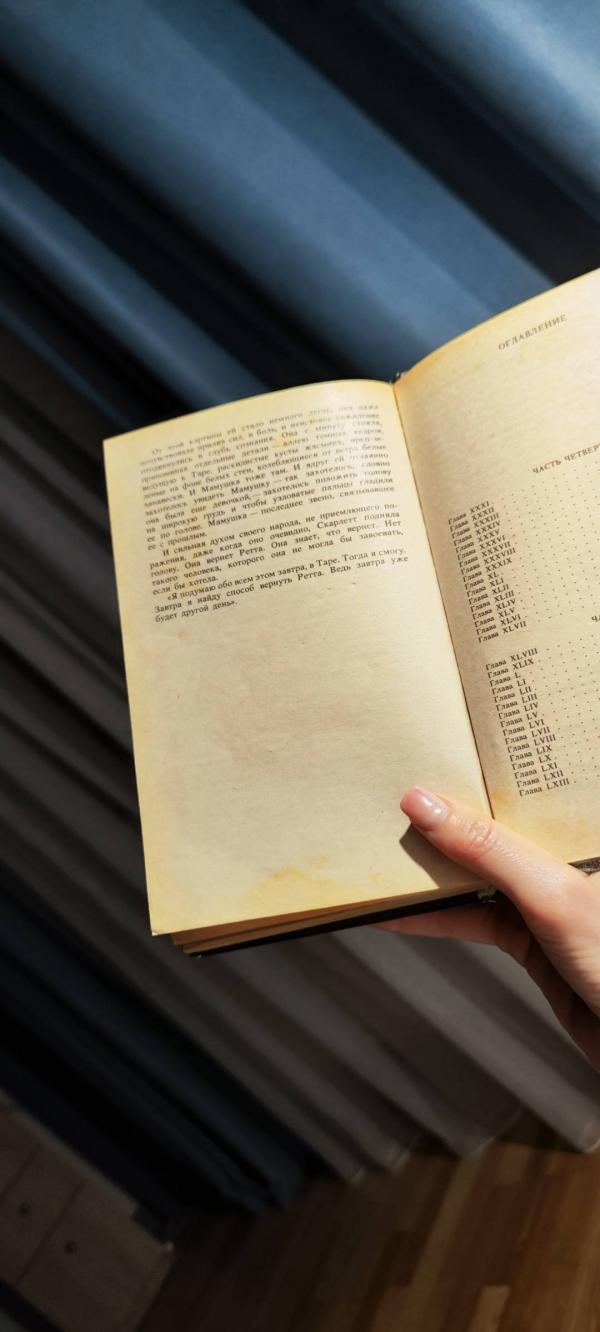 От этой картины ей стало немного легче, она даже
почувствовала прилив сил, и боль, и неистовое сожаление
отодвинулись в глубь сознания. Она с минуту стояла,
припоминая отдельные детали — аллею темных кедров,
ведущую к Таре, раскидистые кусты жасмина, ярко-зе-
леные на фоне белых стен, колеблющиеся от ветра белые
занавески. И Мамушка тоже там. И вдруг ей отчаянно
захотелось увидеть Мамушку — так захотелось, словно
она была еще девочкой, — захотелось положить голову
на широкую грудь и чтобы узловатые пальцы гладили
ее по голове. Мамушка — последнее звено, связывавшее
ее с прошлым.
И сильная духом своего народа, не приемлющего по-
ражения, даже когда оно очевидно, Скарлетт подняла
голову. Она вернет Ретта. Она знает, что вернет. Нет
такого человека, которого она не могла бы завоевать,
если бы хотела.
«Я подумаю обо всем этом завтра, в Таре. Тогда я смогу.
Завтра я найду способ вернуть Ретта. Ведь завтра уже
будет другой день».
ОГЛАВЛЕНИЕ
ЧАСТЬ ЧЕТВЕР
Глава XXXI
Глава XXXII
Глава XXXIII
Глава XXXIV
Глава XXXV
Глава XXXVI
Глава XXXVII
Глава XXXVIII
Глава XXXIX
Глава XL
Глава XLI
Глава XLII
Глава XLIII
Глава XLIV
Глава XLV
Глава XLVI
Глава XLVII
Глава XLVIII
Глава XLIX
Глава L
Глава LI
Глава LII
Глава LIII
Глава LIV
Глава LV
Глава LVI
Глава LVII
Глава LVIII
Глава LIX
Глава LX
Глава LXI
Глава LXII
Глава LXIII